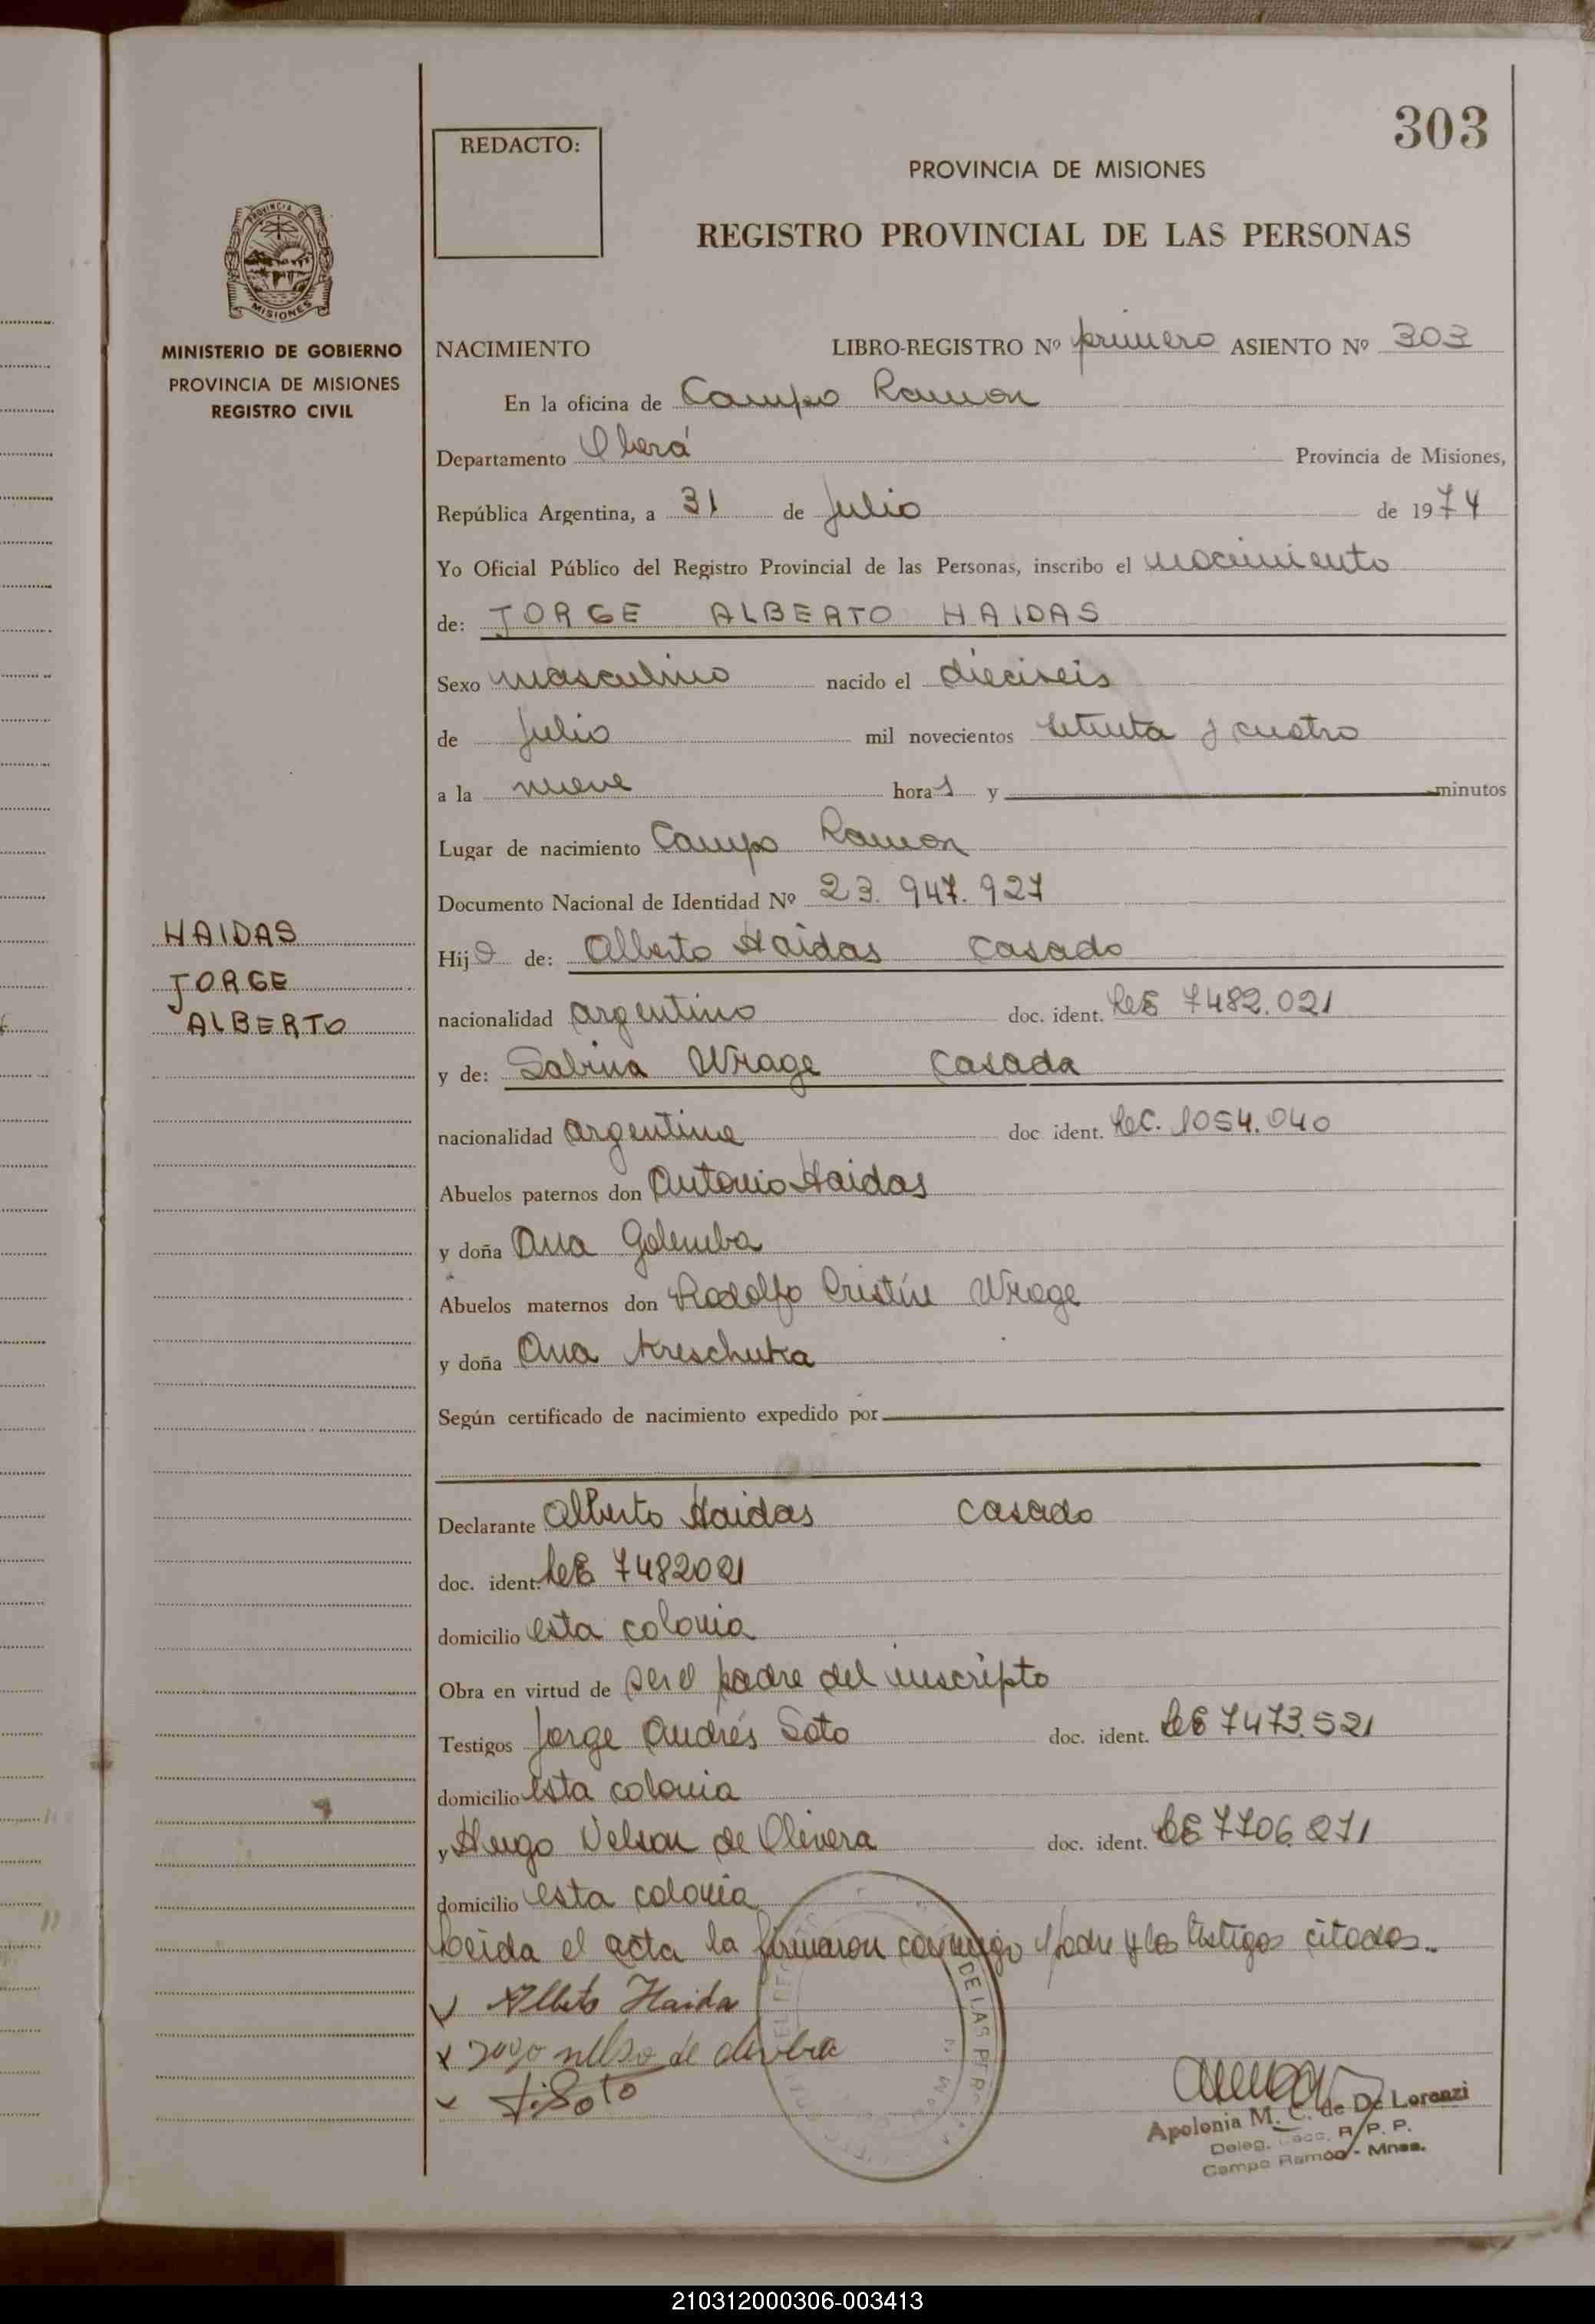 303
REDACTO:
PROVINCIA DE MISIONES
REGISTRO PROVINCIAL DE LAS PERSONAS
PROVINCIA DE
MISIONES
MINISTERIO DE GOBIERNO
PROVINCIA DE MISIONES
REGISTRO CIVIL
NACIMIENTO LIBRO-REGISTRO Nº primero ASIENTO Nº 303
En la oficina de Campo Ramon
Departamento Oberá Provincia de Misiones,
República Argentina, a 31 de Julio de 1974
Yo Oficial Público del Registro Provincial de las Personas, inscribo el nacimiento
de: JORGE ALBERTO HAIDAS
Sexo masculino nacido el dieciseis
de Julio mil novecientos setenta y cuatro
a la nueve horas y minutos
Lugar de nacimiento Campo Ramon
Documento Nacional de Identidad Nº 23.947.927
HAIDAS
JORGE
ALBERTO
Hijo de: Alberto Haidas Casado
nacionalidad argentino doc. ident. LE 7482.021
y de: Sabina Wrage Casada
nacionalidad argentina doc. ident. LC. 1054.040
Abuelos paternos don Antonio Haidas
y doña Ana Golemba
Abuelos maternos don Rodolfo Wrage
y doña Ana
Según certificado de nacimiento expedido por
Declarante Alberto Haidas Casado
doc. ident. LE 7482021
domicilio esta colonia
Obra en virtud de ser el padre del inscripto
Testigos Jorge Andrés Soto doc. ident. LE 7473.521
domicilio esta colonia
y Hugo Nelson de Olivera doc. ident. LE 7706.271
domicilio esta colonia
Leida el acta la firmaron conmigo padre y los testigos citados.
Alberto Haida
x de
J. Soto
DE LAS PER
Apolonia M. C. de De Lorenzi
Deleg. R. P. P.
Campo Ramón - Mnes.
210312000306-003413